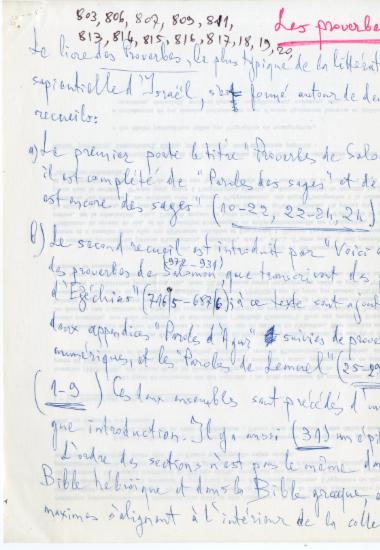 803, 806, 807, 809, 811,
813, 814, 815, 816, 817, 18, 19, 20,
Les proverbes
Le livre des Proverbes, le plus typique de la littérat
sapientielle d'Israël, s'est formé autour de de
recueils:
a) Le premier porte le titre "Proverbes de Salo
il est complété de "Paroles des sages" et de
est encore des sages" (10-22, 22-24, 24)
b) Le second recueil est introduit par "Voici
(972-931)
des proverbes de Salomon que transcrivent des
d'Ézéchias" (716/5-687/6); à ce texte sont ajout
deux appendices "Paroles d'Agur" suivies de prove
numériques, et les "Paroles de Lemuel" (25-29
(1-9) Ces deux ensembles sont précédés d'un
que introduction. Il y a aussi (31) un épi
L'ordre des sections n'est pas le même dan
Bible hébraïque et dans la Bible grecque,
maximes s'alignent à l'intérieur de la colle